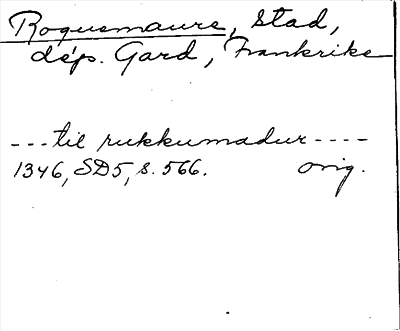 Roquemaure, Stad,
dép. Gard, Frankrike
---til rukkumadur----
1346, SD5, s. 566. orig.